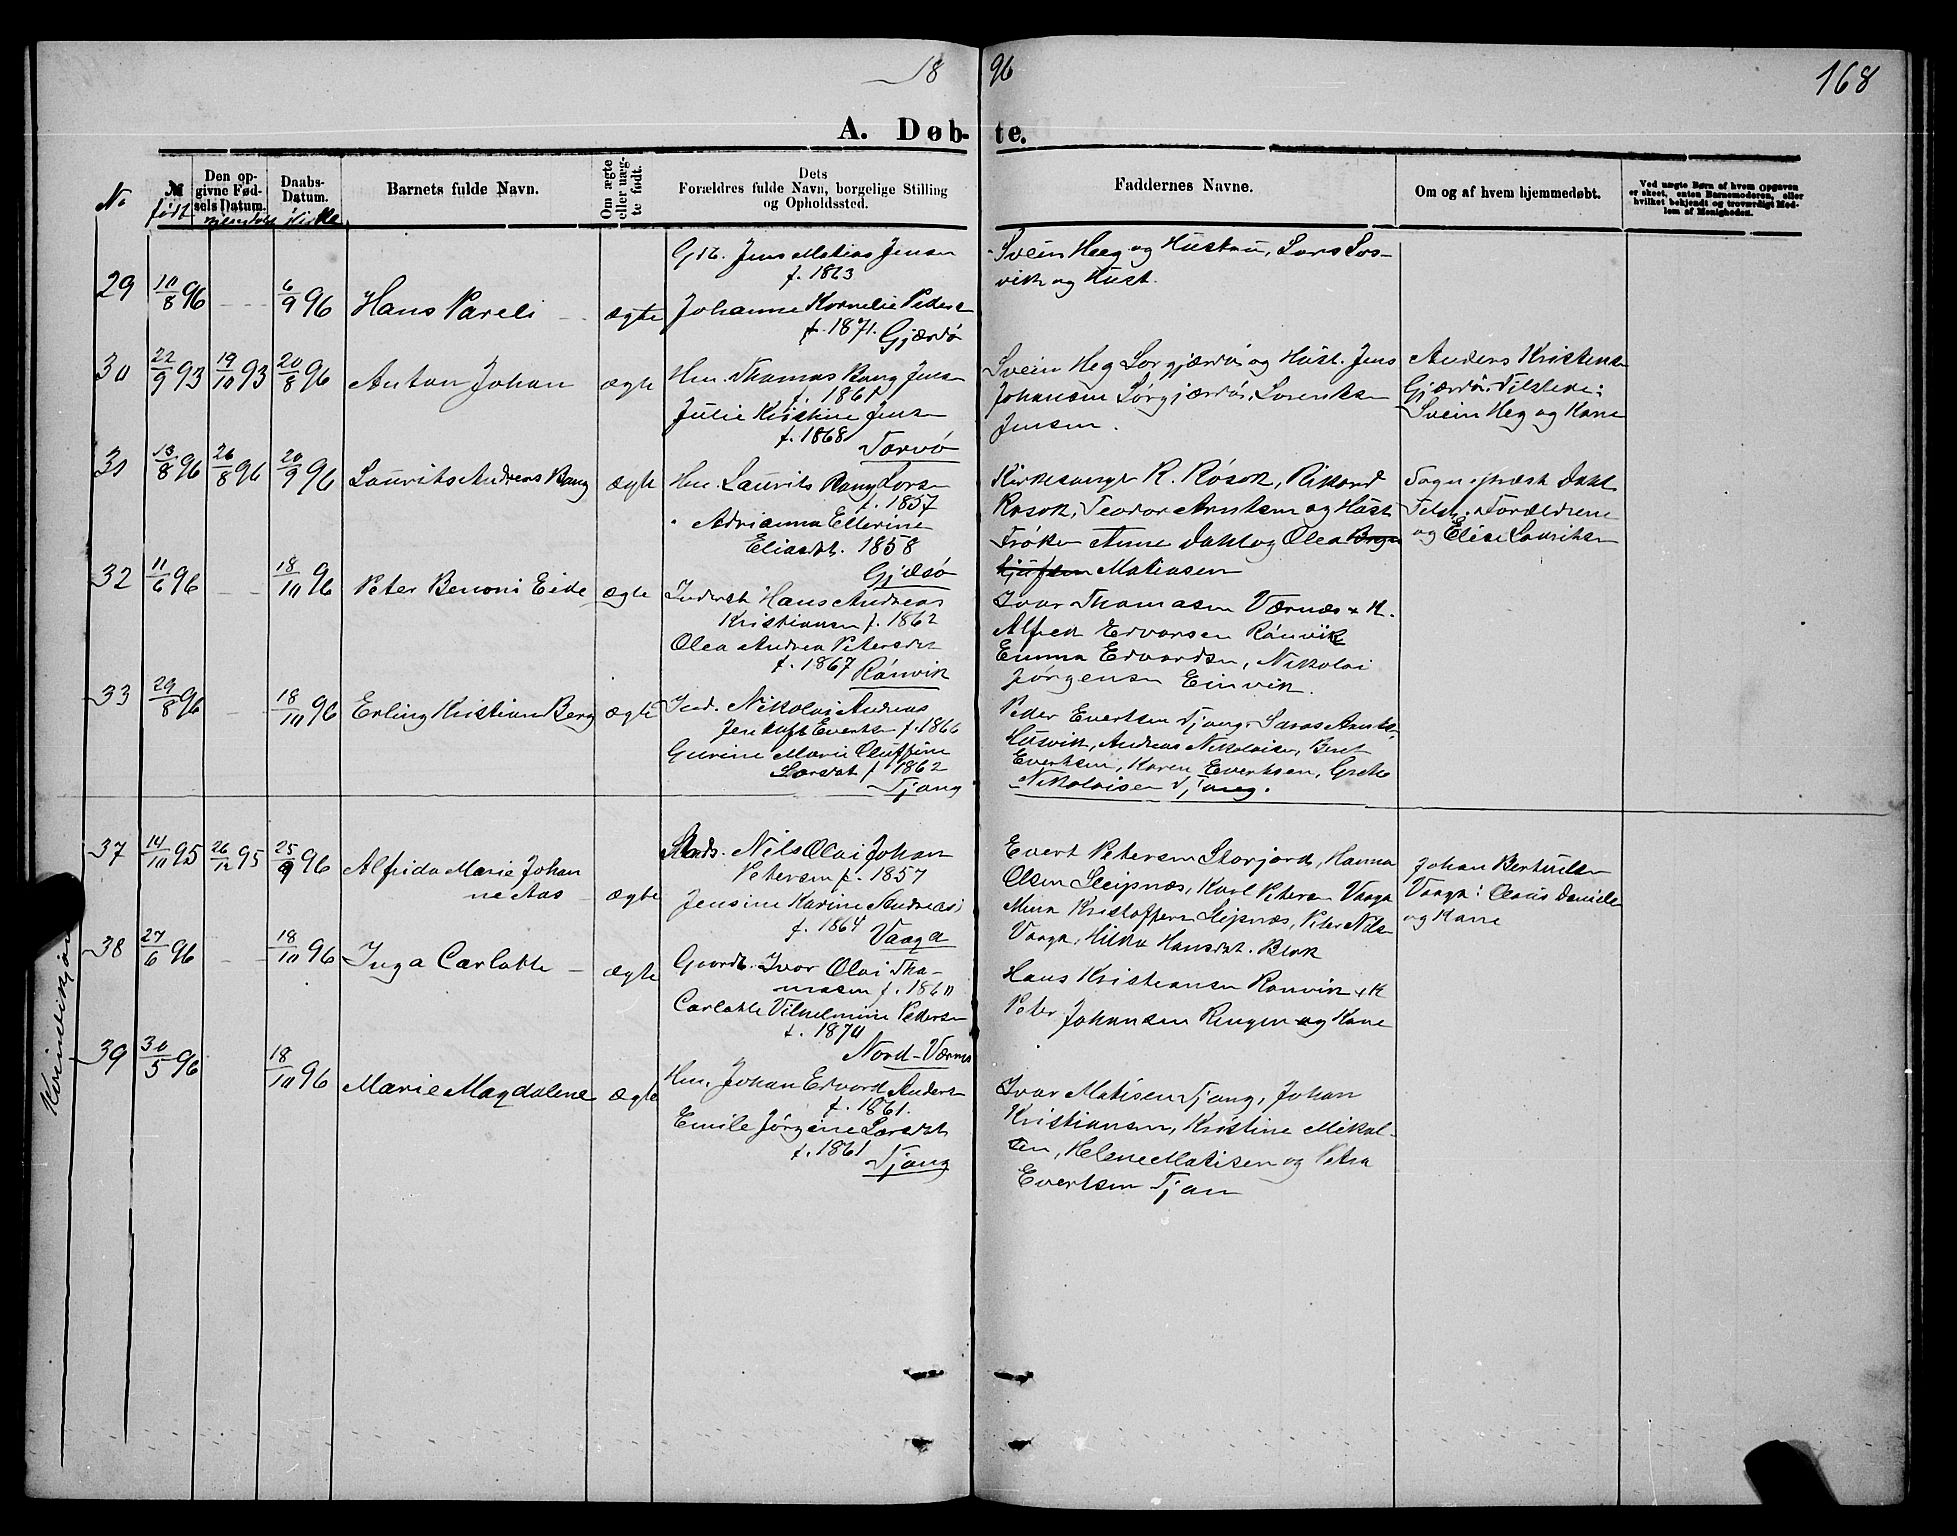 18 96
168
A. Døb- te.
No
№ født
Den opgivne Fødsels Datum.
Daabs-Datum.
Barnets fulde Navn.
Om ægte eller uægte født.
Dets Forældres fulde Navn, borgelige Stilling og Opholdssted.
Faddernes Navne.
Om og af hvem hjemmedøbt.
Ved uægte Børn af hvem Opgaven er skeet, enten Barnemoderen, eller hvilket bekjendt og troværdigt Medlem af Menigheden.
29 10/8 96 6/9 96 Hans Pareli ægte
Jens Matias Jensen
f. 1863
Johanne Kornelie Peders
f. 1871. Gjærdø
Svein Heg og Hustru, Lars
vik og Hust.
30 22/9 93 19/10 93 20/8 96 Anton Johan ægte
Hm. Thomas Bang Jens
f. 1861
Julie Kristine Jens
f. 1868
Torvø
Svein Heg Sørgjærdø og Hust. Jens
Johansen Sørgjærdø, Lorents
Jensen.
Anders Kristens
Gjærdø. Tilstede:
Svein Heg og Kone
31 13/8 96 26/8 96 20/9 96 Laurits Andreas Bang ægte
Hm. Laurits Bang Lars
f. 1857
Adrianna Ellerine
Eliasdt. 1858
Gjæsø
Kirkesanger R. Røsok, Rikard
Røsok, Teodor Arntsen og Hust
Frøken Anne Dahl og Olea
Matiasen
Sogneprest Dahl
Tilst. Forældrene
og Elise Lauritsen
32 11/6 96 18/10 96 Peter Benoni Eide ægte
Inderst Hans Andreas
Kristiansen f. 1862
Olea Andrea Petersdt
f. 1867 Rønvik
Ivar Thomasen Værnæs + K.
Alfred Edvarsen Rønvik
Emma Edvardsen, Nikolai
Jørgensen Einvik.
33 29/8 96 18/10 96 Erling Kristian Berg ægte
Ind. Nikolai Andreas
Jentoft Evertsen f. 1866
Gurine Marie Oluffine
Larsdt f. 1862
Tjong
Peder Evertsen Tjong, Lars Arnts
Husvik, Andreas Nikolaisen, Berit
Evertsen, Karen Evertsen, Grete
Nikolaisen Tjong.
Kvindekjøn
37 14/10 95 26/12 95 25/9 96 Alfrida Marie Johan
ne Aas ægte
Nils Olai Johan
Petersen f. 1857
Jensine Karine Andreas
f. 1864 Vaaga
Evert Petersen Storjord, Hanna
Olsen Sleipnæs, Karl Petersen Vaaga
Mina Kristoffersen Sleipnæs, Peter Nils
Vaaga, Hilda Hansdt. Berk
Johan Bertheusen
Vaaga: Olaus Daniels
og Kone
38 27/6 96 18/10 96 Inga Carlotte ægte
Gaardb. Ivar Olai Tho-
masen f. 1860
Carlotte Vilhelmine Peders
f. 1870
Nord-Værnes
Hans Kristiansen Rønvik + K
Peter Johansen Ringen og Kone
39 30/5 96 18/10 96 Marie Magdalene ægte
Hm. Johan Edvard Anders
f. 1861.
Emilie Jørgine Larsdt
f. 1861
Tjong
Ivar Matisen Tjong, Johan
Kristiansen, Kristine Mikal-
sen, Helene Matisen og Petra
Evertsen Tjon